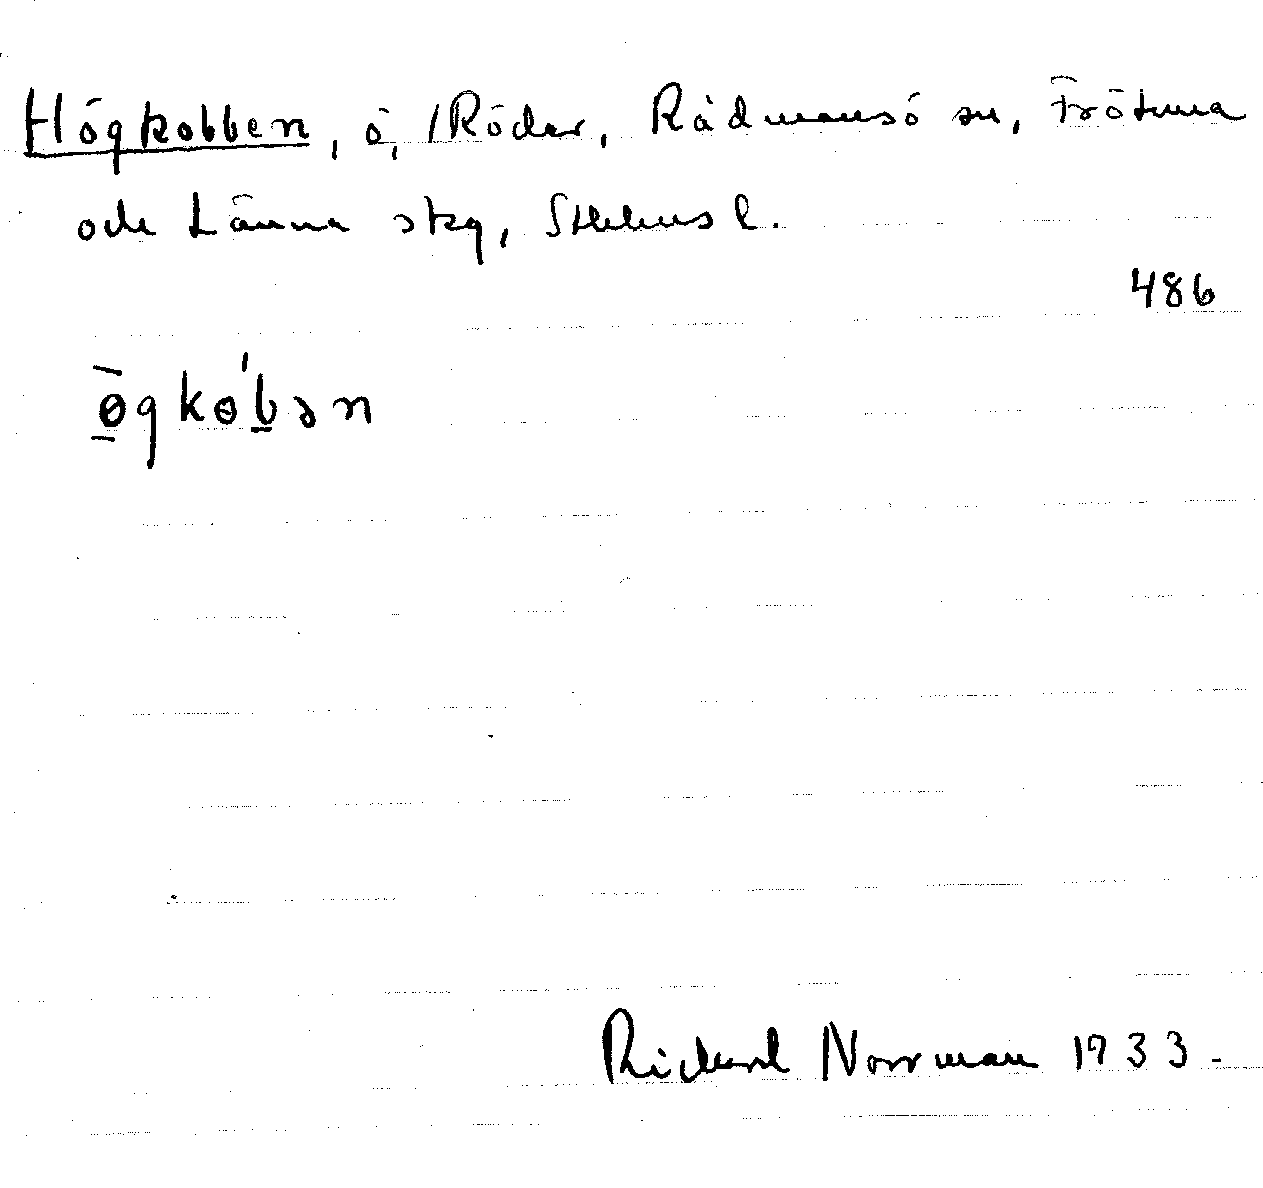 Högkobben, ö, /Röder, Rådmansö sn, Frötuna
och Länna skg, Sthlms l.
486
ø̀gkɵ'bən
Rickard Norrman 1933.